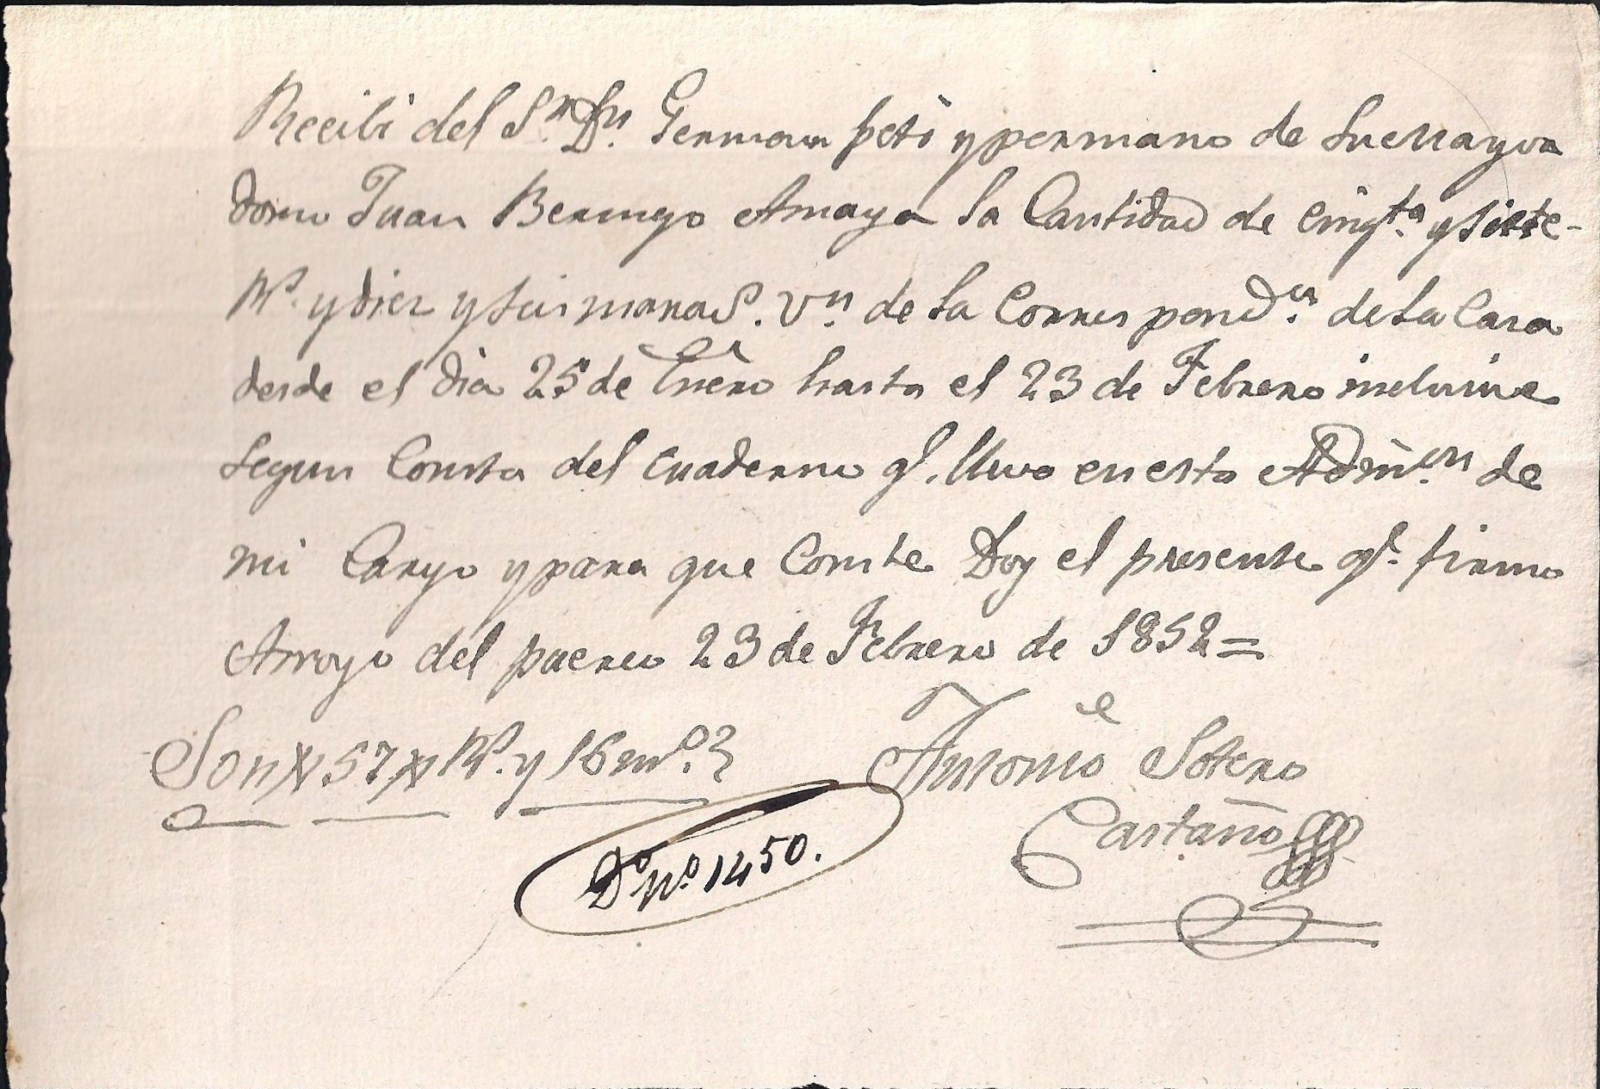 Recibi del Sr. Dn. German peti y permano de Su Mayor
domo Juan Bermejo Amaya la Cantidad de Cinqta. y siete
Rs. y diez y seis maras. Vn. de la Correspondca. de la Casa
desde el dia 25 de Enero hasta el 23 de Febrero inclusive
Segun Consta del Cuaderno q. llevo en esta Admon. de
mi Cargo y para que Conste Doy el presente q. firmo
Arroyo del puerco 23 de Febrero de 1852 =
Son 57 Rs. y 16 ms.
Antonio Sotero
Castaño
Do. No. 1450.